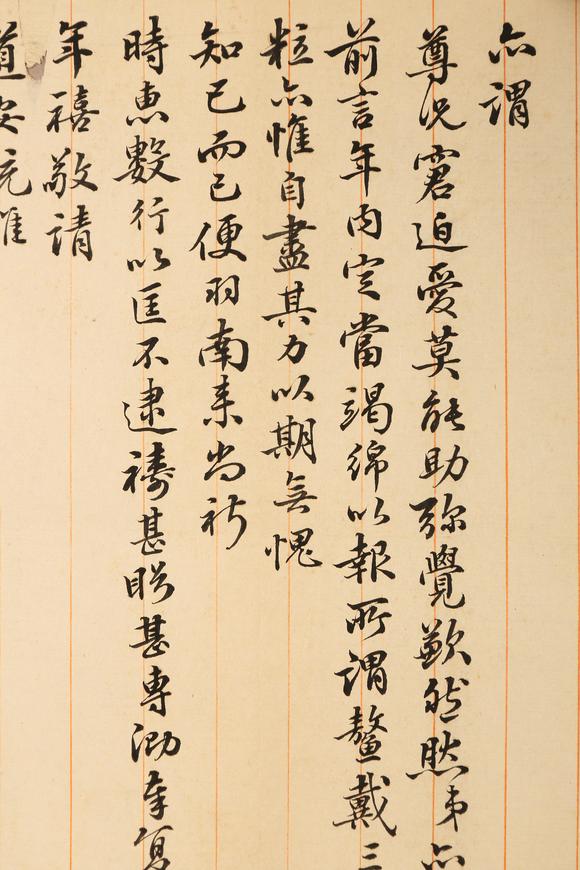 亦謂
尊况窘迫愛莫能助弥覺歉然然弟亦
前言年内定當竭綿以報所謂鼇戴三
粒亦惟自盡其力以期無愧
知己而已便羽南来尚祈
時惠數行以匡不逮禱甚盼甚專泐奉復
年禧敬請
道安統惟